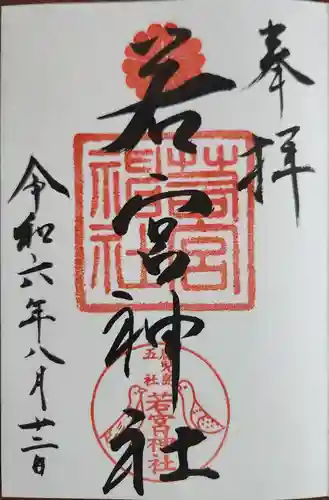 奉拝
若宮神社
若宮神社
鹿児島
五社
若宮神社
令和六年八月廿二日